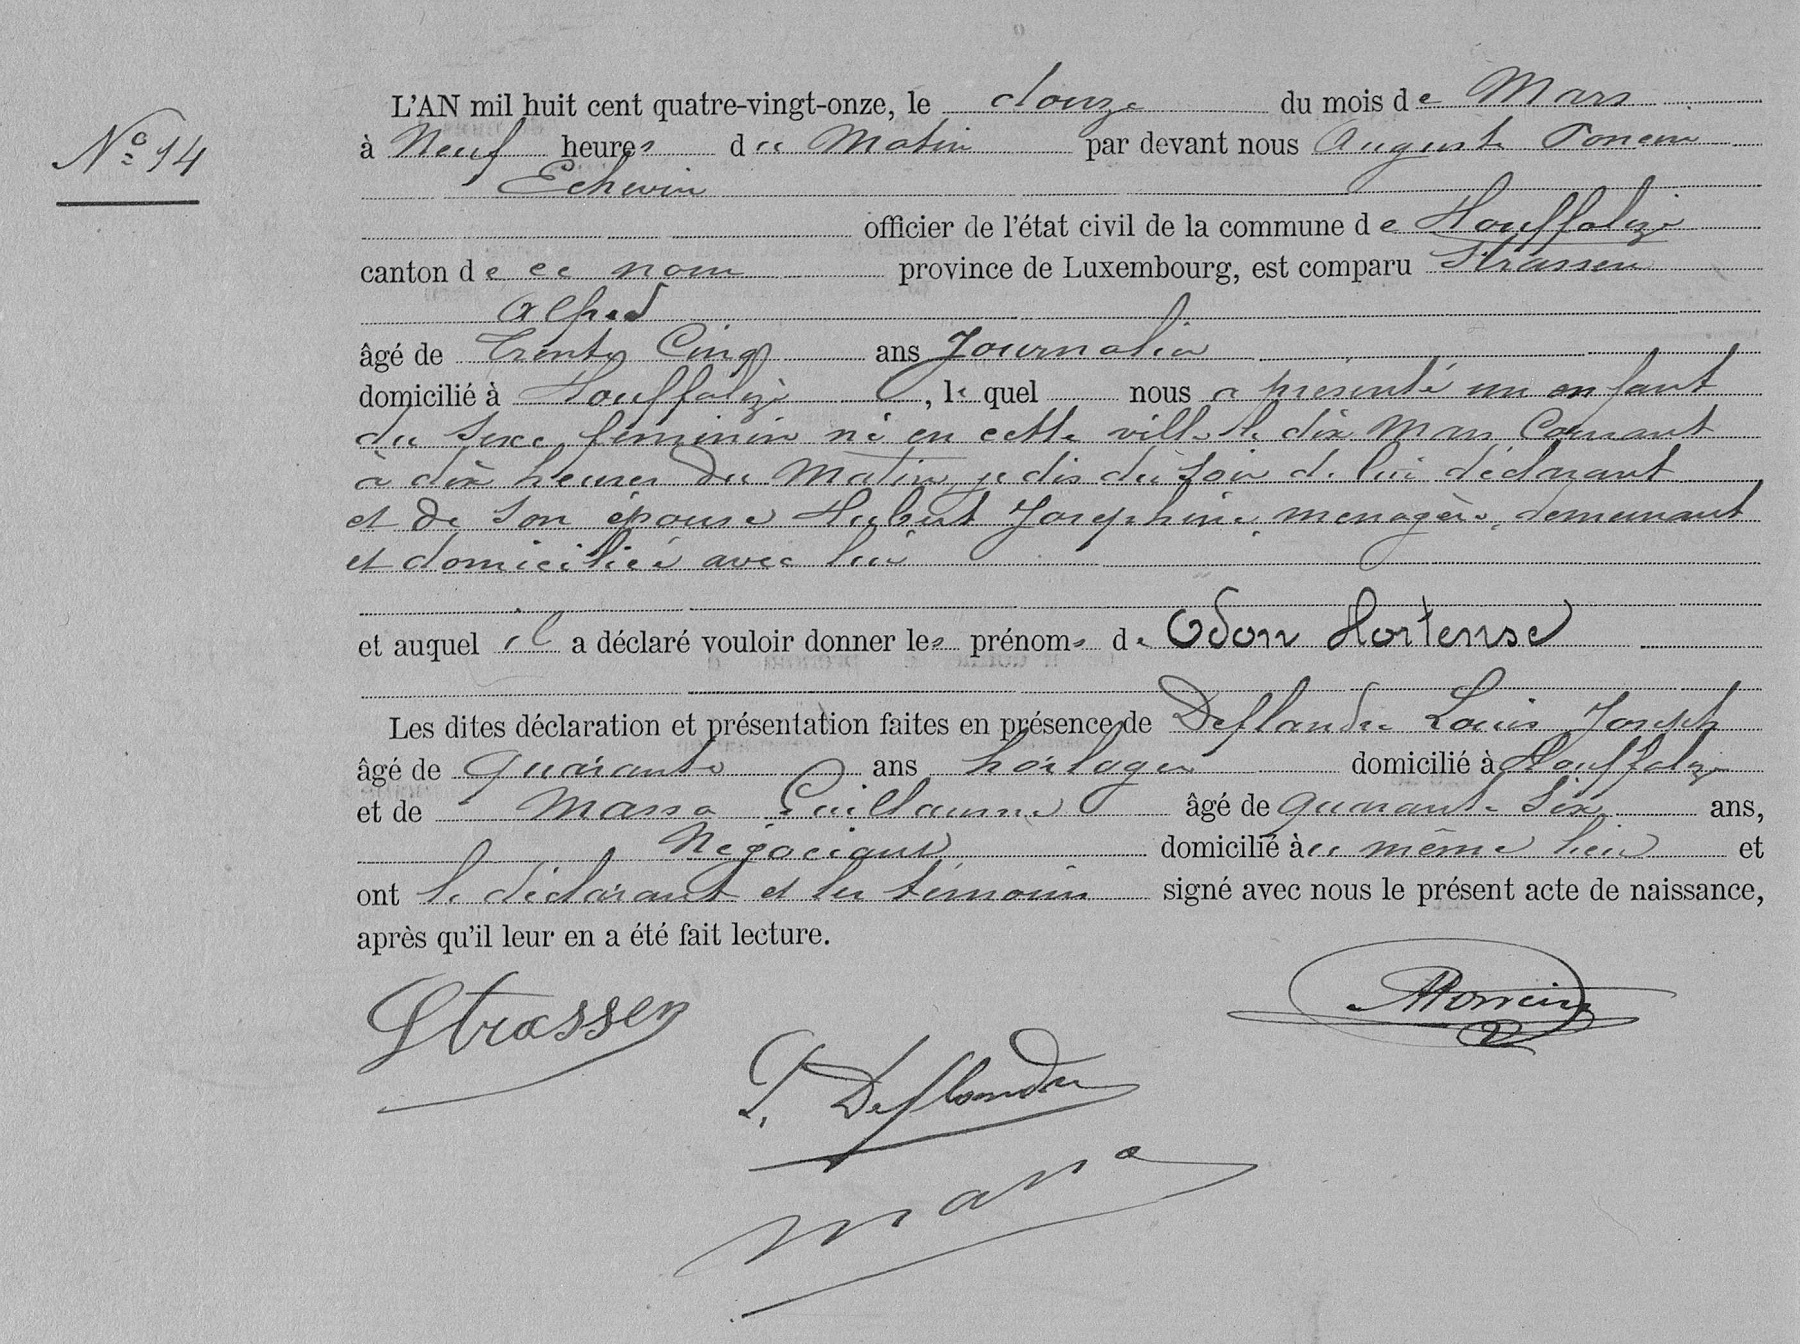 L'AN mil huit cent quatre-vingt-onze, le douze du mois de Mars
Nº 14
à Neuf heures du Matin par devant nous Auguste Poncin
Echevin
officier de l'état civil de la commune de Houffalize
canton de ce nom province de Luxembourg, est comparu Strassen
Alfred
âgé de Trente Cinq ans Journalier
domicilié à Houffalize, lequel nous a présenté un enfant
du sexe féminin né en cette ville le dix Mars Courant
à dix heures du Matin, je dis du soir de lui déclarant
et de son épouse Hubert Josephine, menagère, demeurant
et domiciliée avec lui
et auquel il a déclaré vouloir donner les prénoms de Odon Hortense
Les dites déclaration et présentation faites en présence de Deflandre Louis Joseph
âgé de quarante ans horloger domicilié à Houffalize
et de Massa Guillaume âgé de quarante six ans,
Négociant domicilié à u même lieu et
ont le déclarant et les témoins signé avec nous le présent acte de naissance,
après qu'il leur en a été fait lecture.
Strassen
APoncin
L. Deflandre
Massa